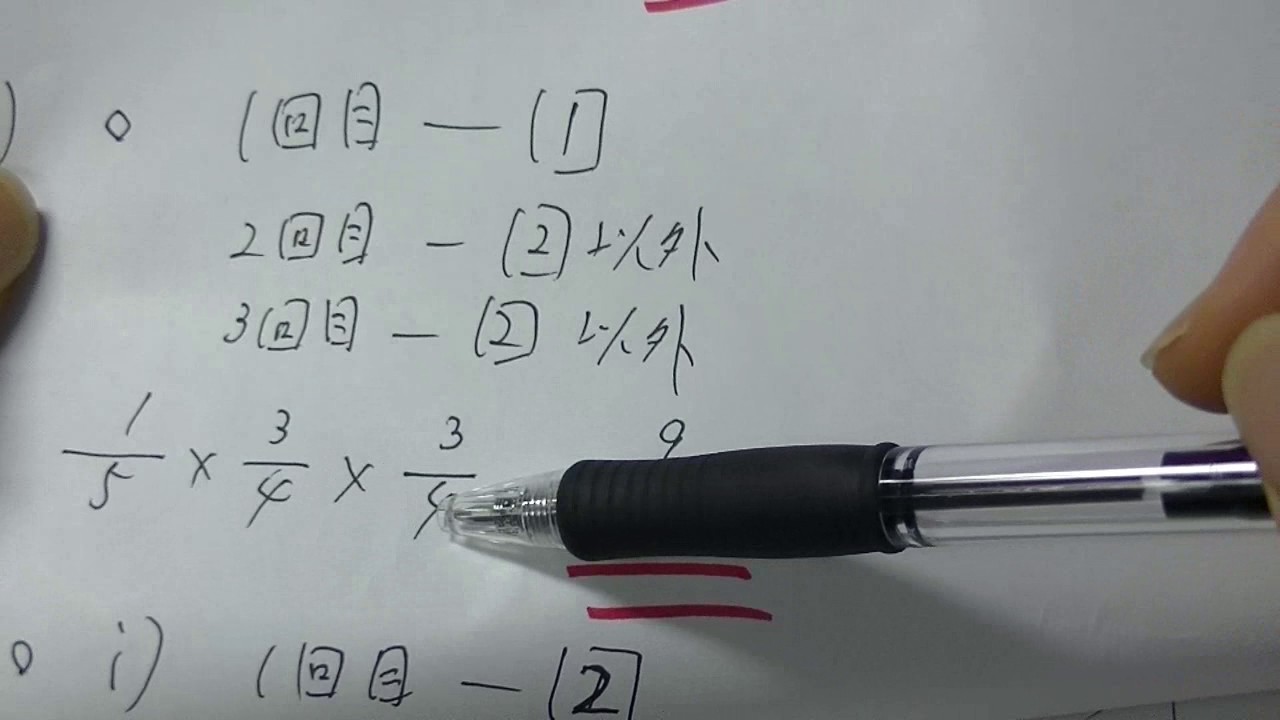 ) ○ 1回目 — [1]
2回目 — [2] 以外
3回目 — [2] 以外
1/5 × 3/4 × 3/4 9
○ i) 1回目 — [2]